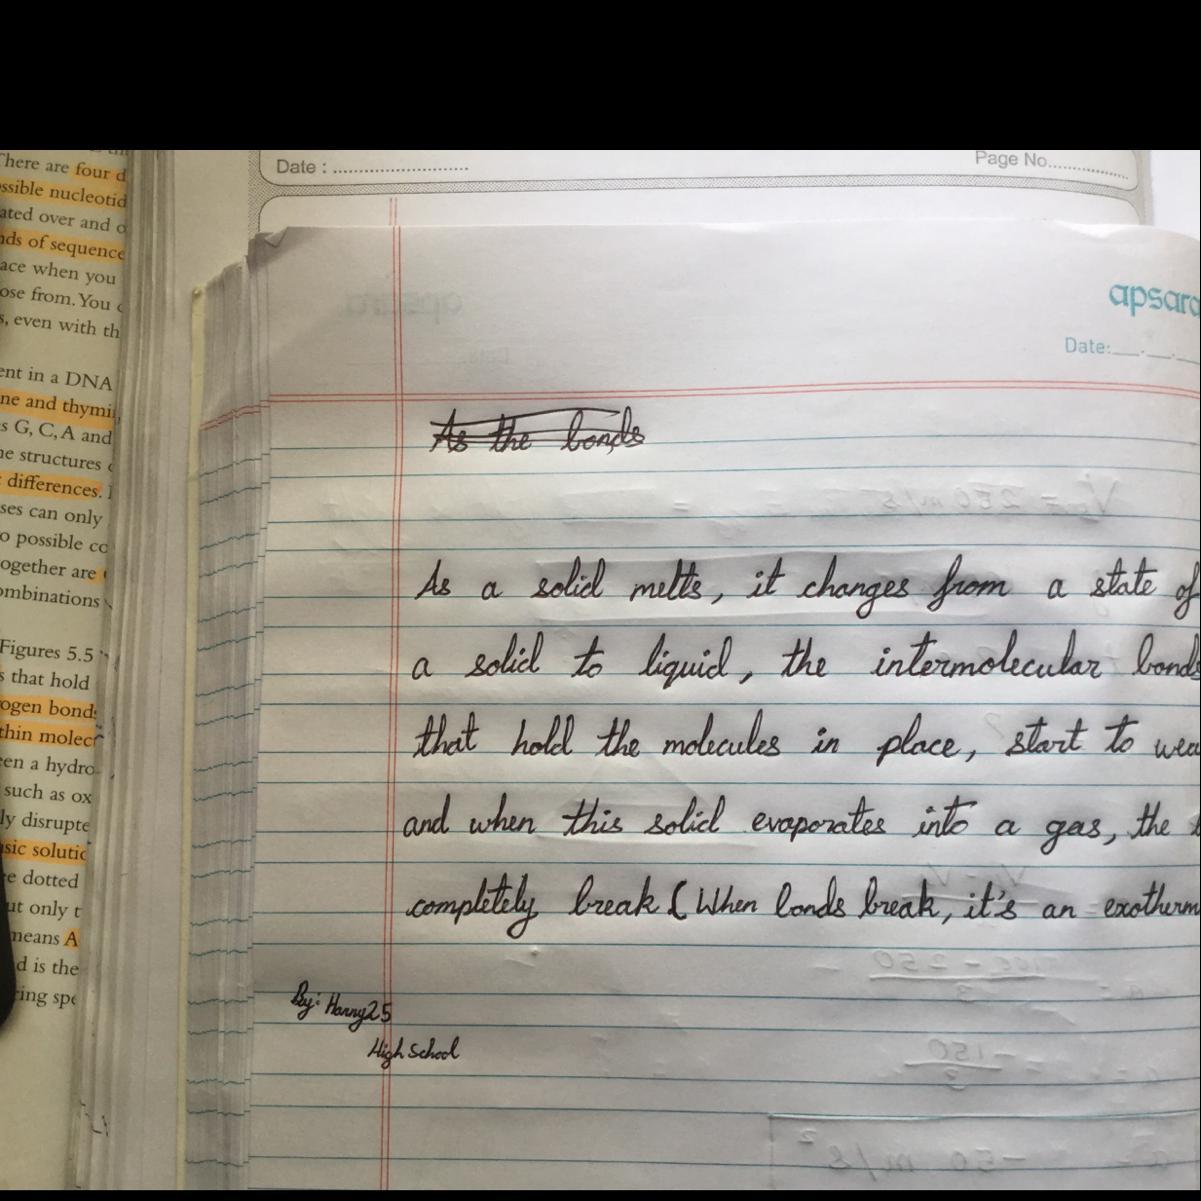 There are four d
ssible nucleotid
ated over and o
nds of sequence
ace when you
ose from. You c
s, even with th
ent in a DNA
ne and thymi
s G, C, A and
ne structures
differences.
ses can only
o possible co
ogether are
ombinations
Figures 5.5
s that hold
ogen bonds
thin molec
een a hydro-
such as ox
ly disrupte
sic solutic
e dotted
ut only t
means A
d is the
ring spe
Date : 
Page No.
apsara
Date:
As the bonds
As a solid melts, it changes from a state of
a solid to liquid, the intermolecular bonds
that hold the molecules in place, start to wea
and when this solid evaporates into a gas, the
completely break (When bonds break, it's an exotherm
By: Harry25
High School